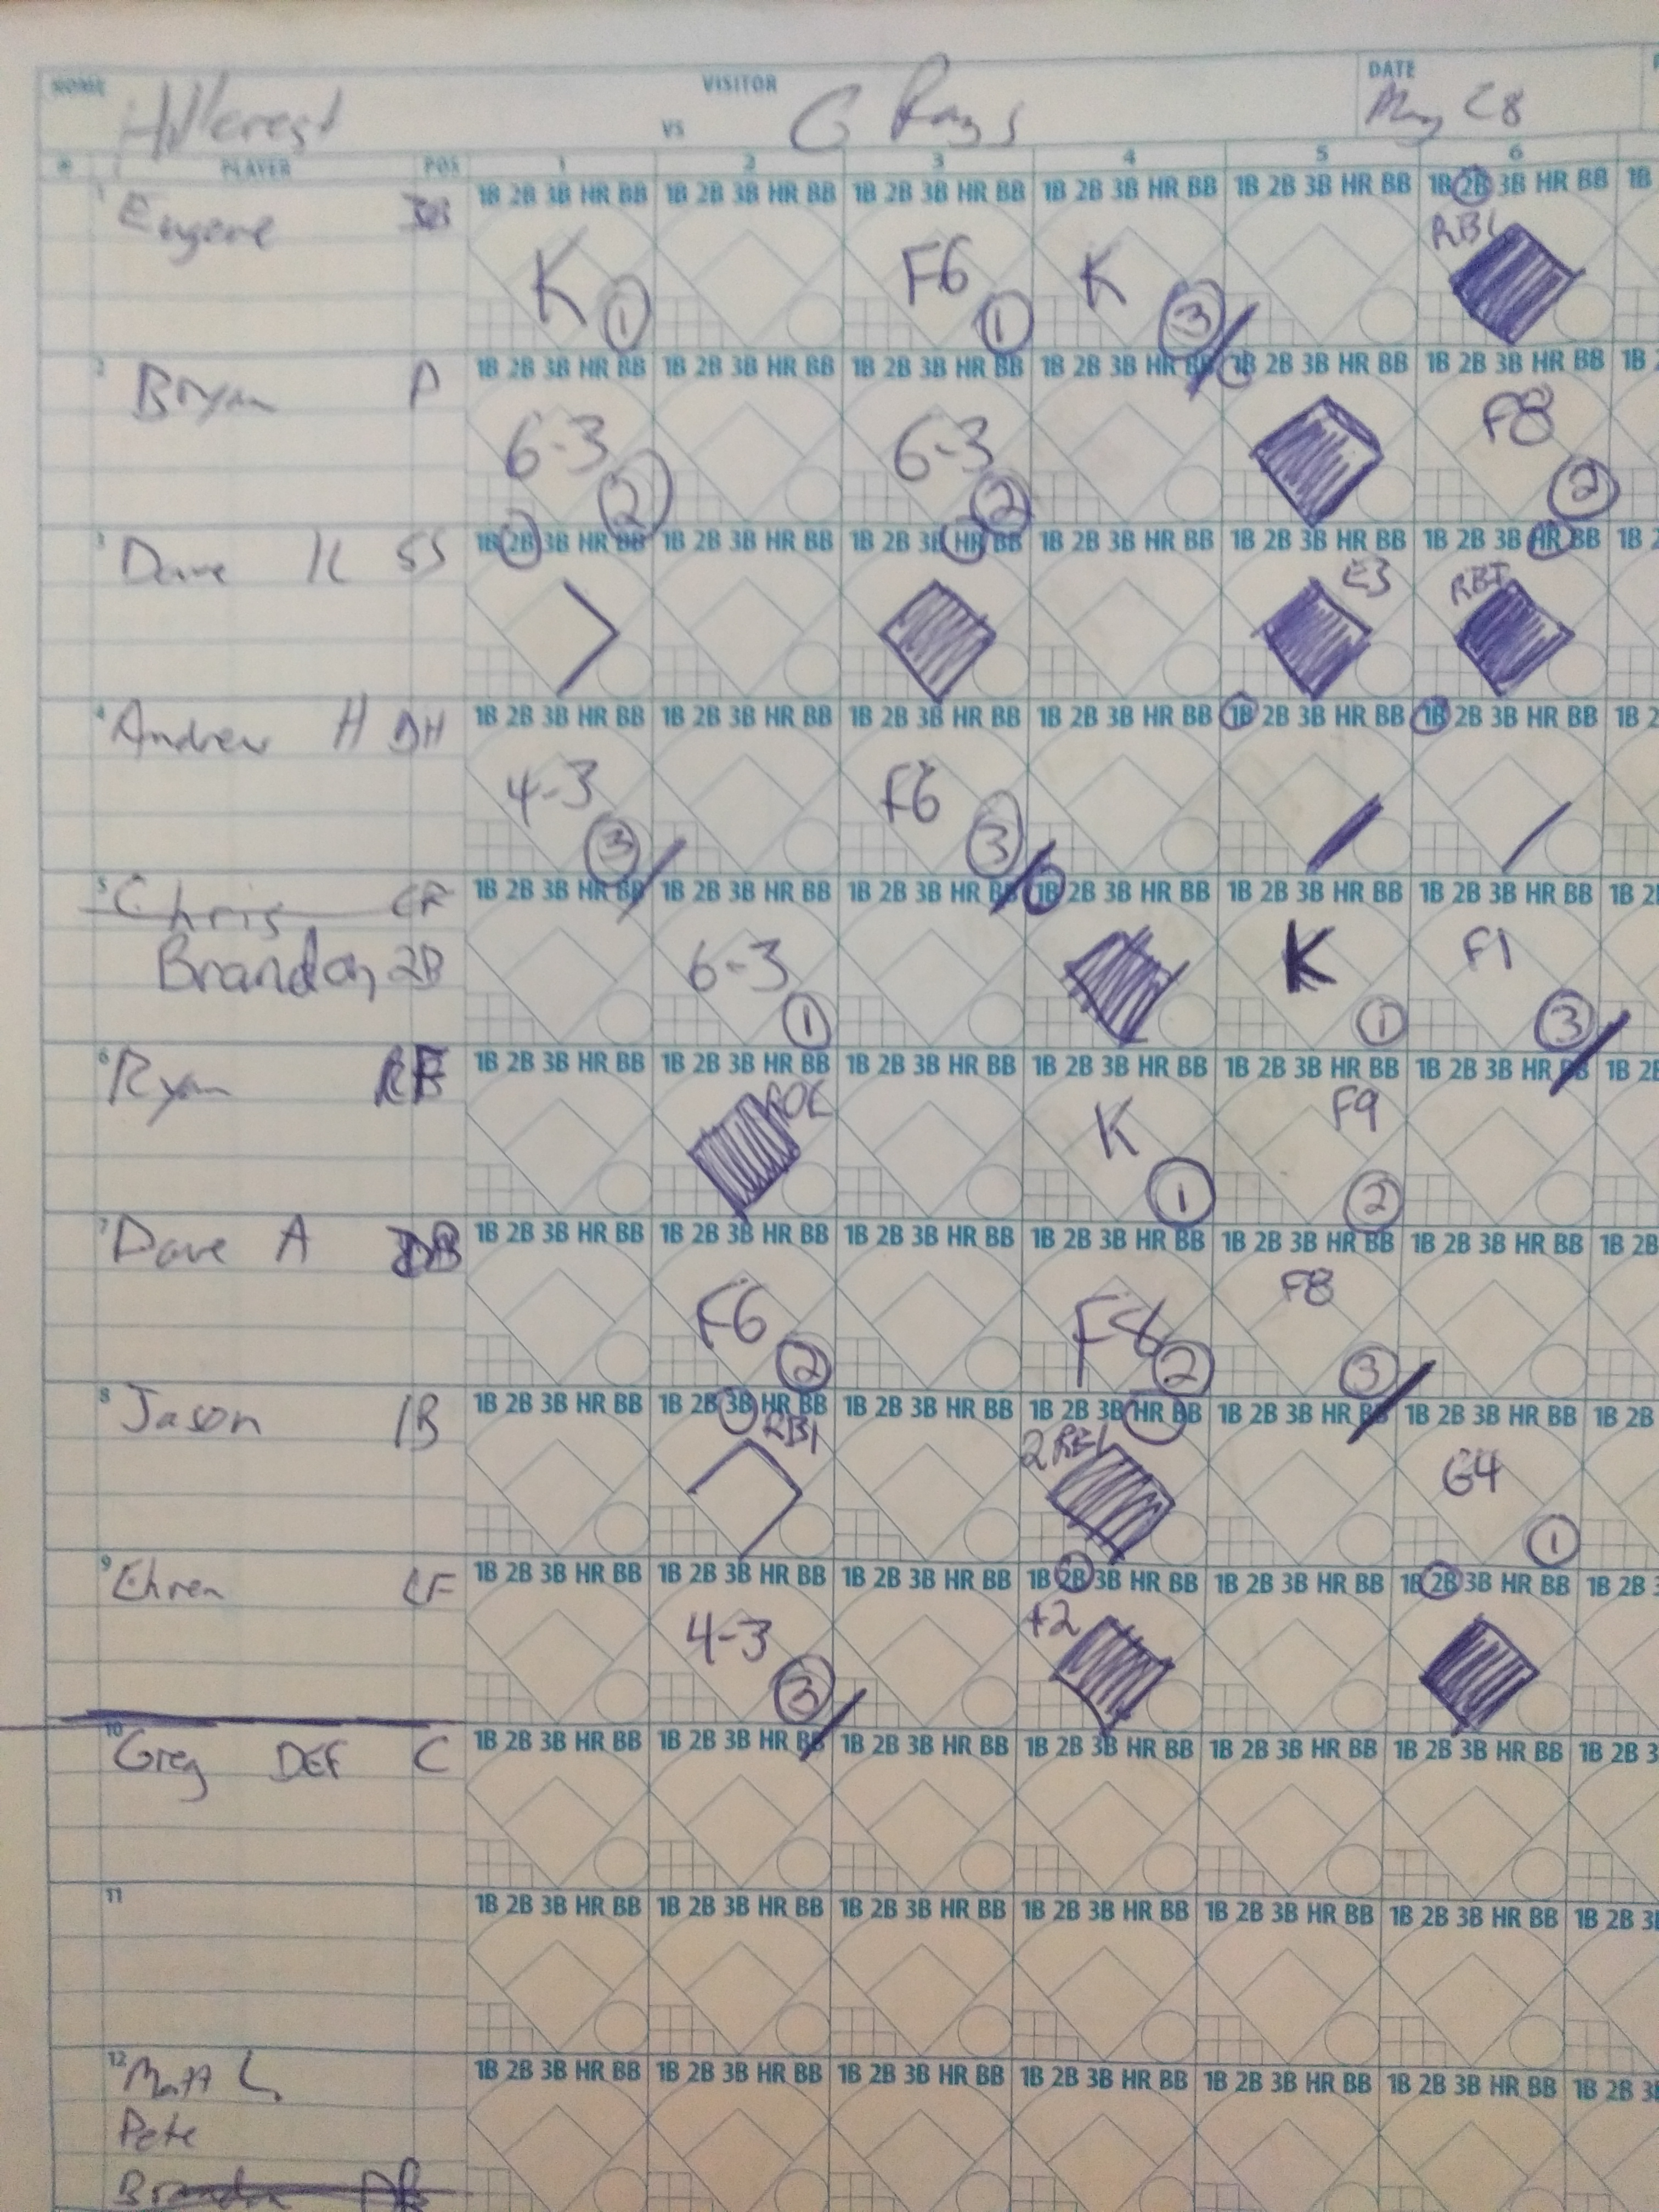 HOME VISITOR DATE
Hillcrest VS G Rays May 28
# PLAYER POS 1 2 3 4 5 6
1 1B 2B 3B HR BB 1B 2B 3B HR BB 1B 2B 3B HR BB 1B 2B 3B HR BB 1B 2B 3B HR BB 1B 2B 3B HR BB 1B
Eugene K 1 F6 1 K 3 RBI
2 1B 2B 3B HR BB 1B 2B 3B HR BB 1B 2B 3B HR BB 1B 2B 3B HR BB 1B 2B 3B HR BB 1B 2B 3B HR BB 1B 2
Bryan P 6-3 2 6-3 2 F8 2
3 1B 2B 3B HR BB 1B 2B 3B HR BB 1B 2B 3B HR BB 1B 2B 3B HR BB 1B 2B 3B HR BB 1B 2B 3B HR BB 1B 2
Dave K SS E3 RBI
4 1B 2B 3B HR BB 1B 2B 3B HR BB 1B 2B 3B HR BB 1B 2B 3B HR BB 1B 2B 3B HR BB 1B 2B 3B HR BB 1B 2
Andrew H DH 4-3 3 F6 3
5 1B 2B 3B HR BB 1B 2B 3B HR BB 1B 2B 3B HR BB 1B 2B 3B HR BB 1B 2B 3B HR BB 1B 2B 3B HR BB 1B 2
Chris CF
Brandon 2B 6-3 1 K 1 F1 3
6 1B 2B 3B HR BB 1B 2B 3B HR BB 1B 2B 3B HR BB 1B 2B 3B HR BB 1B 2B 3B HR BB 1B 2B 3B HR BB 1B 2B
Ryan RF ROE K 1 F9 2
7 1B 2B 3B HR BB 1B 2B 3B HR BB 1B 2B 3B HR BB 1B 2B 3B HR BB 1B 2B 3B HR BB 1B 2B 3B HR BB 1B 2B
Dave A F6 2 F8 2 F8 3
8 1B 2B 3B HR BB 1B 2B 3B HR BB 1B 2B 3B HR BB 1B 2B 3B HR BB 1B 2B 3B HR BB 1B 2B 3B HR BB 1B 2B
Jason 1B RBI 2 RBI G4 1
9 1B 2B 3B HR BB 1B 2B 3B HR BB 1B 2B 3B HR BB 1B 2B 3B HR BB 1B 2B 3B HR BB 1B 2B 3B HR BB 1B 2B
Ehren LF 4-3 3 +2
10 1B 2B 3B HR BB 1B 2B 3B HR BB 1B 2B 3B HR BB 1B 2B 3B HR BB 1B 2B 3B HR BB 1B 2B 3B HR BB 1B 2B 3
Greg DEF C
11 1B 2B 3B HR BB 1B 2B 3B HR BB 1B 2B 3B HR BB 1B 2B 3B HR BB 1B 2B 3B HR BB 1B 2B 3B HR BB 1B 2B 3
12 1B 2B 3B HR BB 1B 2B 3B HR BB 1B 2B 3B HR BB 1B 2B 3B HR BB 1B 2B 3B HR BB 1B 2B 3B HR BB 1B 2B 3
Matt L.
Pete
Brandon